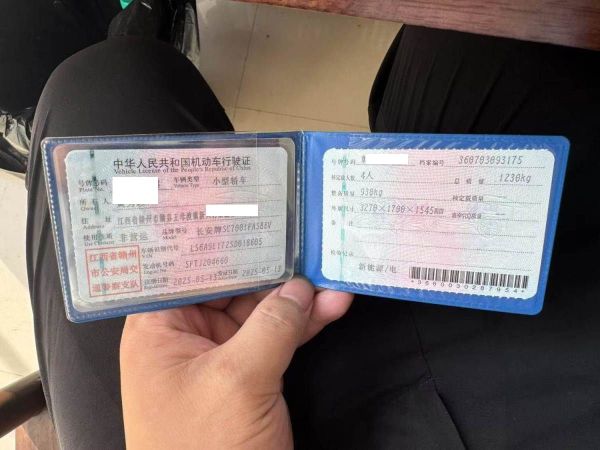 中华人民共和国机动车行驶证
Vehicle License of the People's Republic of China
号牌号码
Plate No.
车辆类型
Vehicle Type
小型轿车
所有人
Owner
住址
Address
使用性质
Use Character
非营运
品牌型号
Model
长安牌SC7001FASBEV
江西省赣州
市公安局交
通警察支队
车辆识别代号
发动机号码
注册日期
2025-05-13
发证日期
2025-05-13
号牌号码
档案编号
360703093175
核定载人数
4人
总质量
1230kg
整备质量
930kg
核定载质量
外廓尺寸
3270×1700×1545mm
备注
检验记录
新能源/电